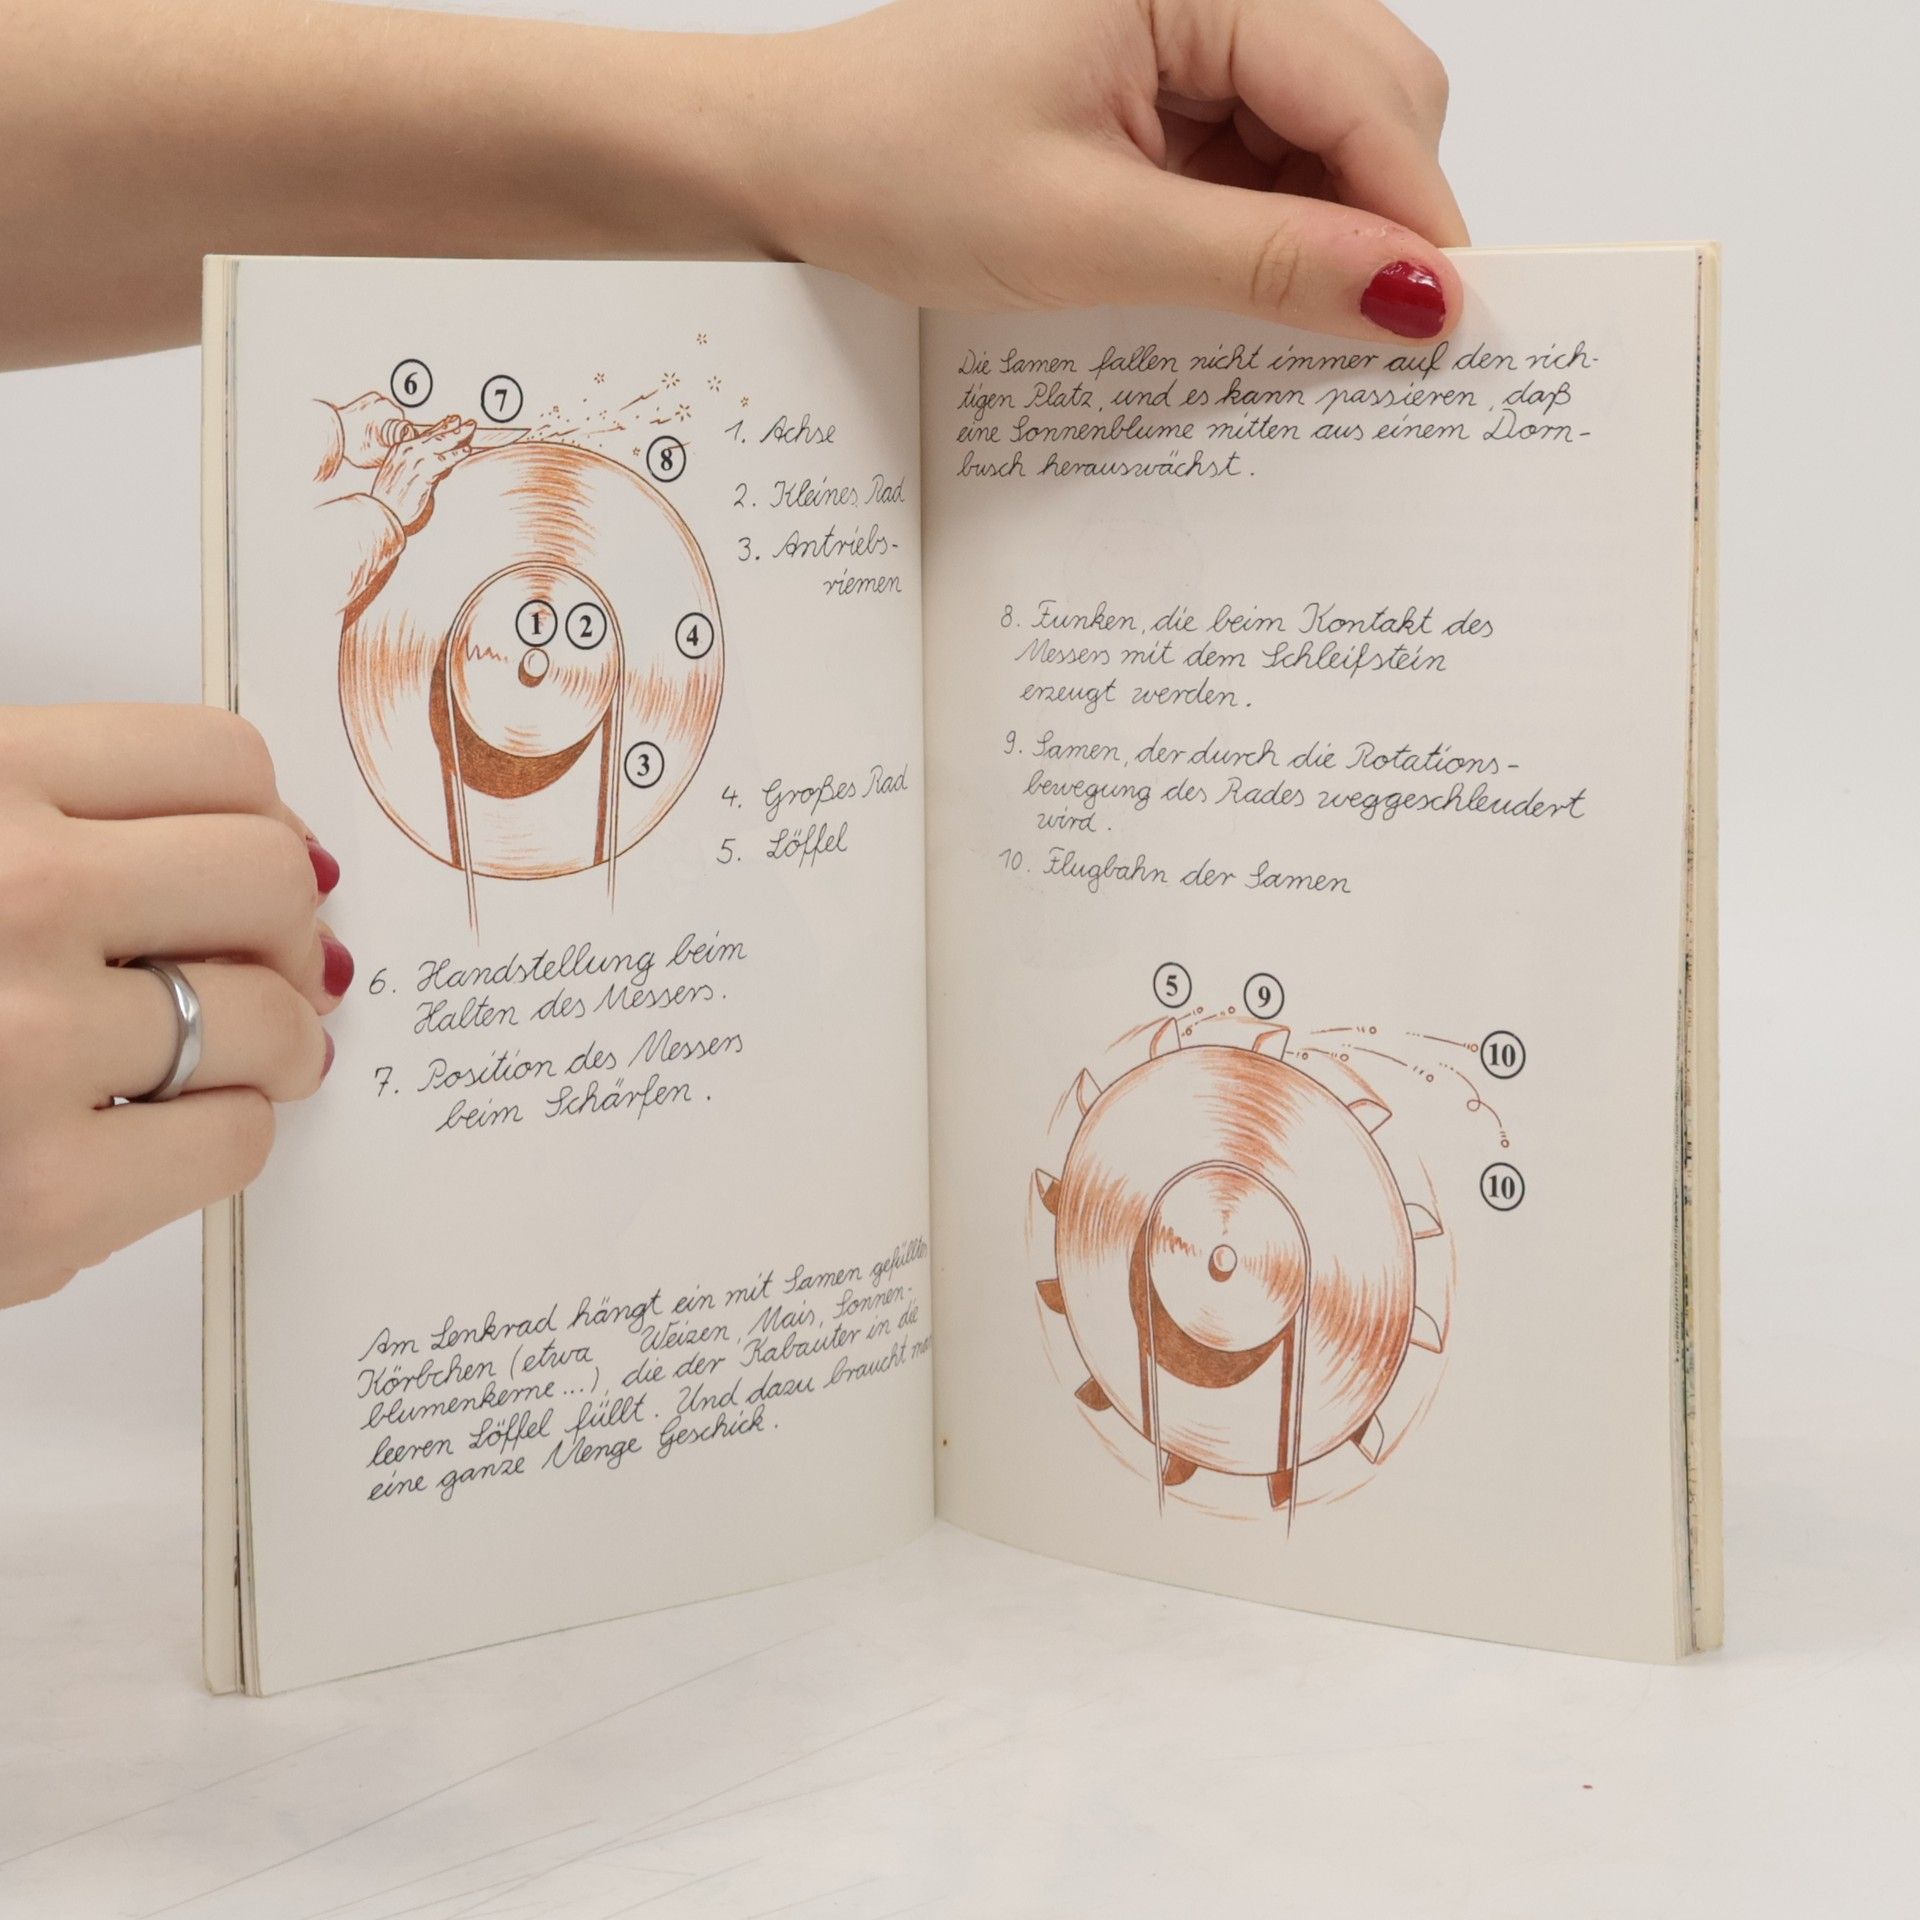 6
7
8
1. Achse
2. Kleines Rad
3. Antriebs-
riemen
1 2
4
3
4. Großes Rad
5. Löffel
6. Handstellung beim
Halten des Messers.
7. Position des Messers
beim Schärfen.
Am Lenkrad hängt ein mit Samen gefülltes
Körbchen (etwa Weizen, Mais, Sonnen-
blumenkerne...), die der Kabauter in die
leeren Löffel füllt. Und dazu braucht man
eine ganze Menge Geschick.
Die Samen fallen nicht immer auf den rich-
tigen Platz, und es kann passieren, daß
eine Sonnenblume mitten aus einem Dorn-
busch herauswächst.
8. Funken, die beim Kontakt des
Messers mit dem Schleifstein
erzeugt werden.
9. Samen, der durch die Rotations-
bewegung des Rades weggeschleudert
wird.
10. Flugbahn der Samen
5 9
10
10